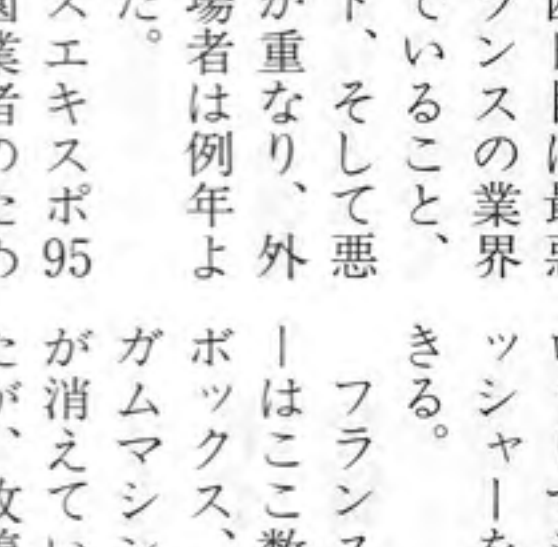 ンスの業界
ていること、
ト、そして悪
が重なり、外
場者は例年よ
た。
スエキスポ95
業者のため
ッシャーな
きる。
フランス
ーはここ数
ボックス、
ガムマシン
が消えてい
たが、